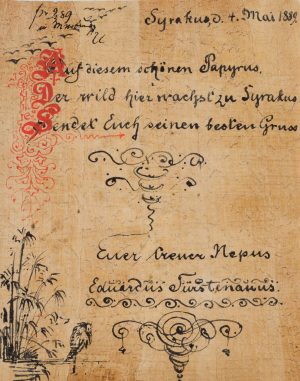 Syrakus, d. 4. Mai 1889
Auf diesem schönen Papyrus,
Der wild hier wächst zu Syrakus
Sendet Euch seinen besten Gruss
Euer treuer Nepus
Eduardus